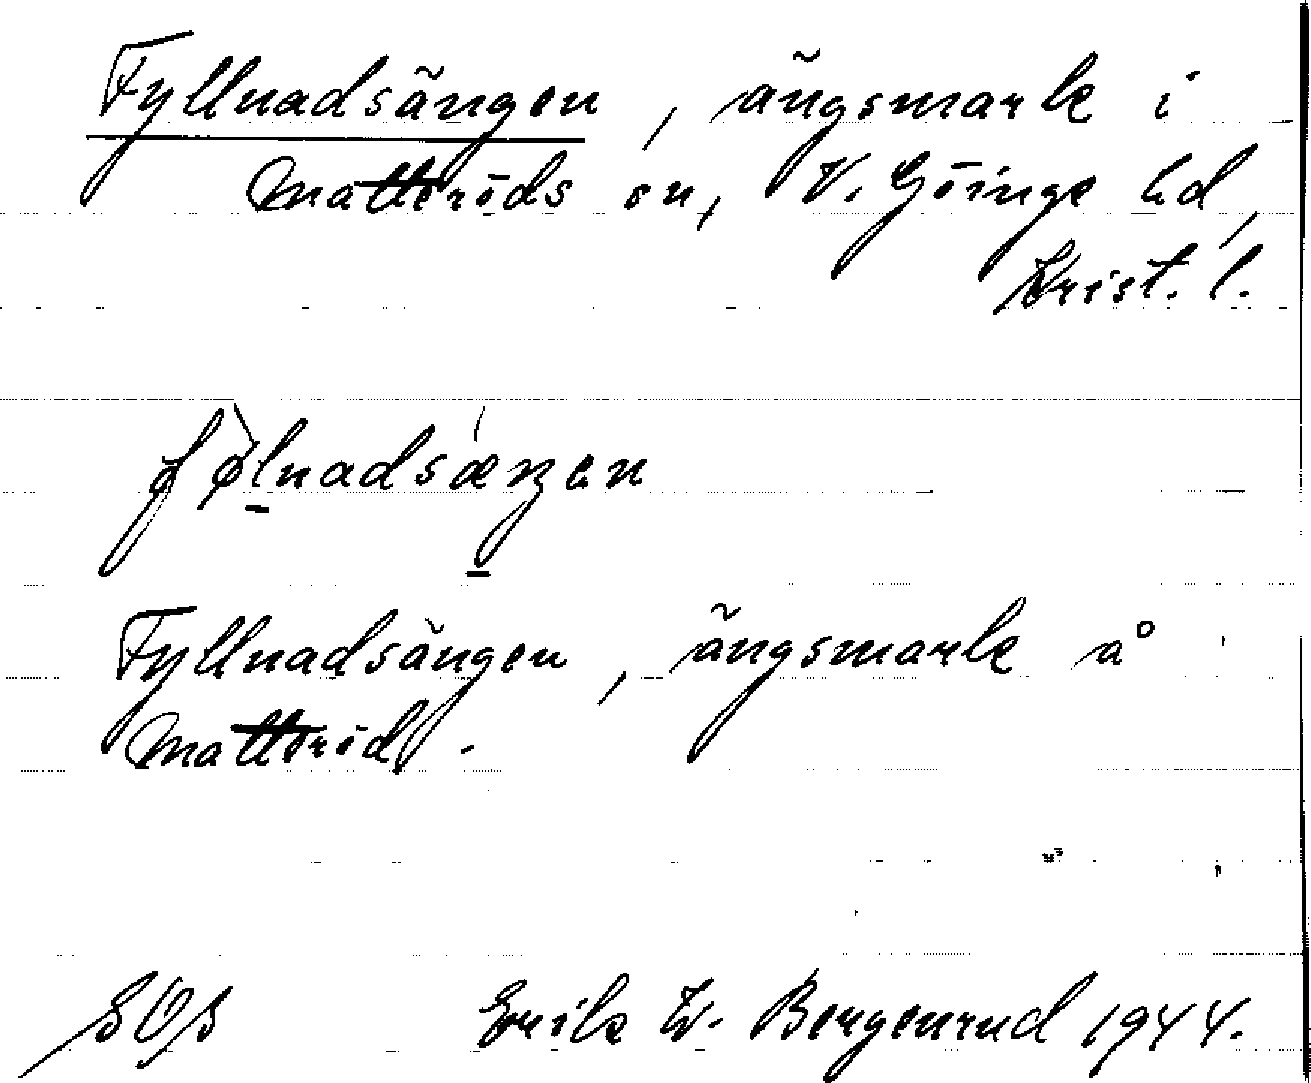 Fyllnadsängen, ängsmark i
Matteröds sn, V. Göinge hd,
Krist. l.
fø̀lnadsǽŋen
Fyllnadsängen, ängsmark å
Matteröd.
SOS Erik W. Bergenrud 1944.